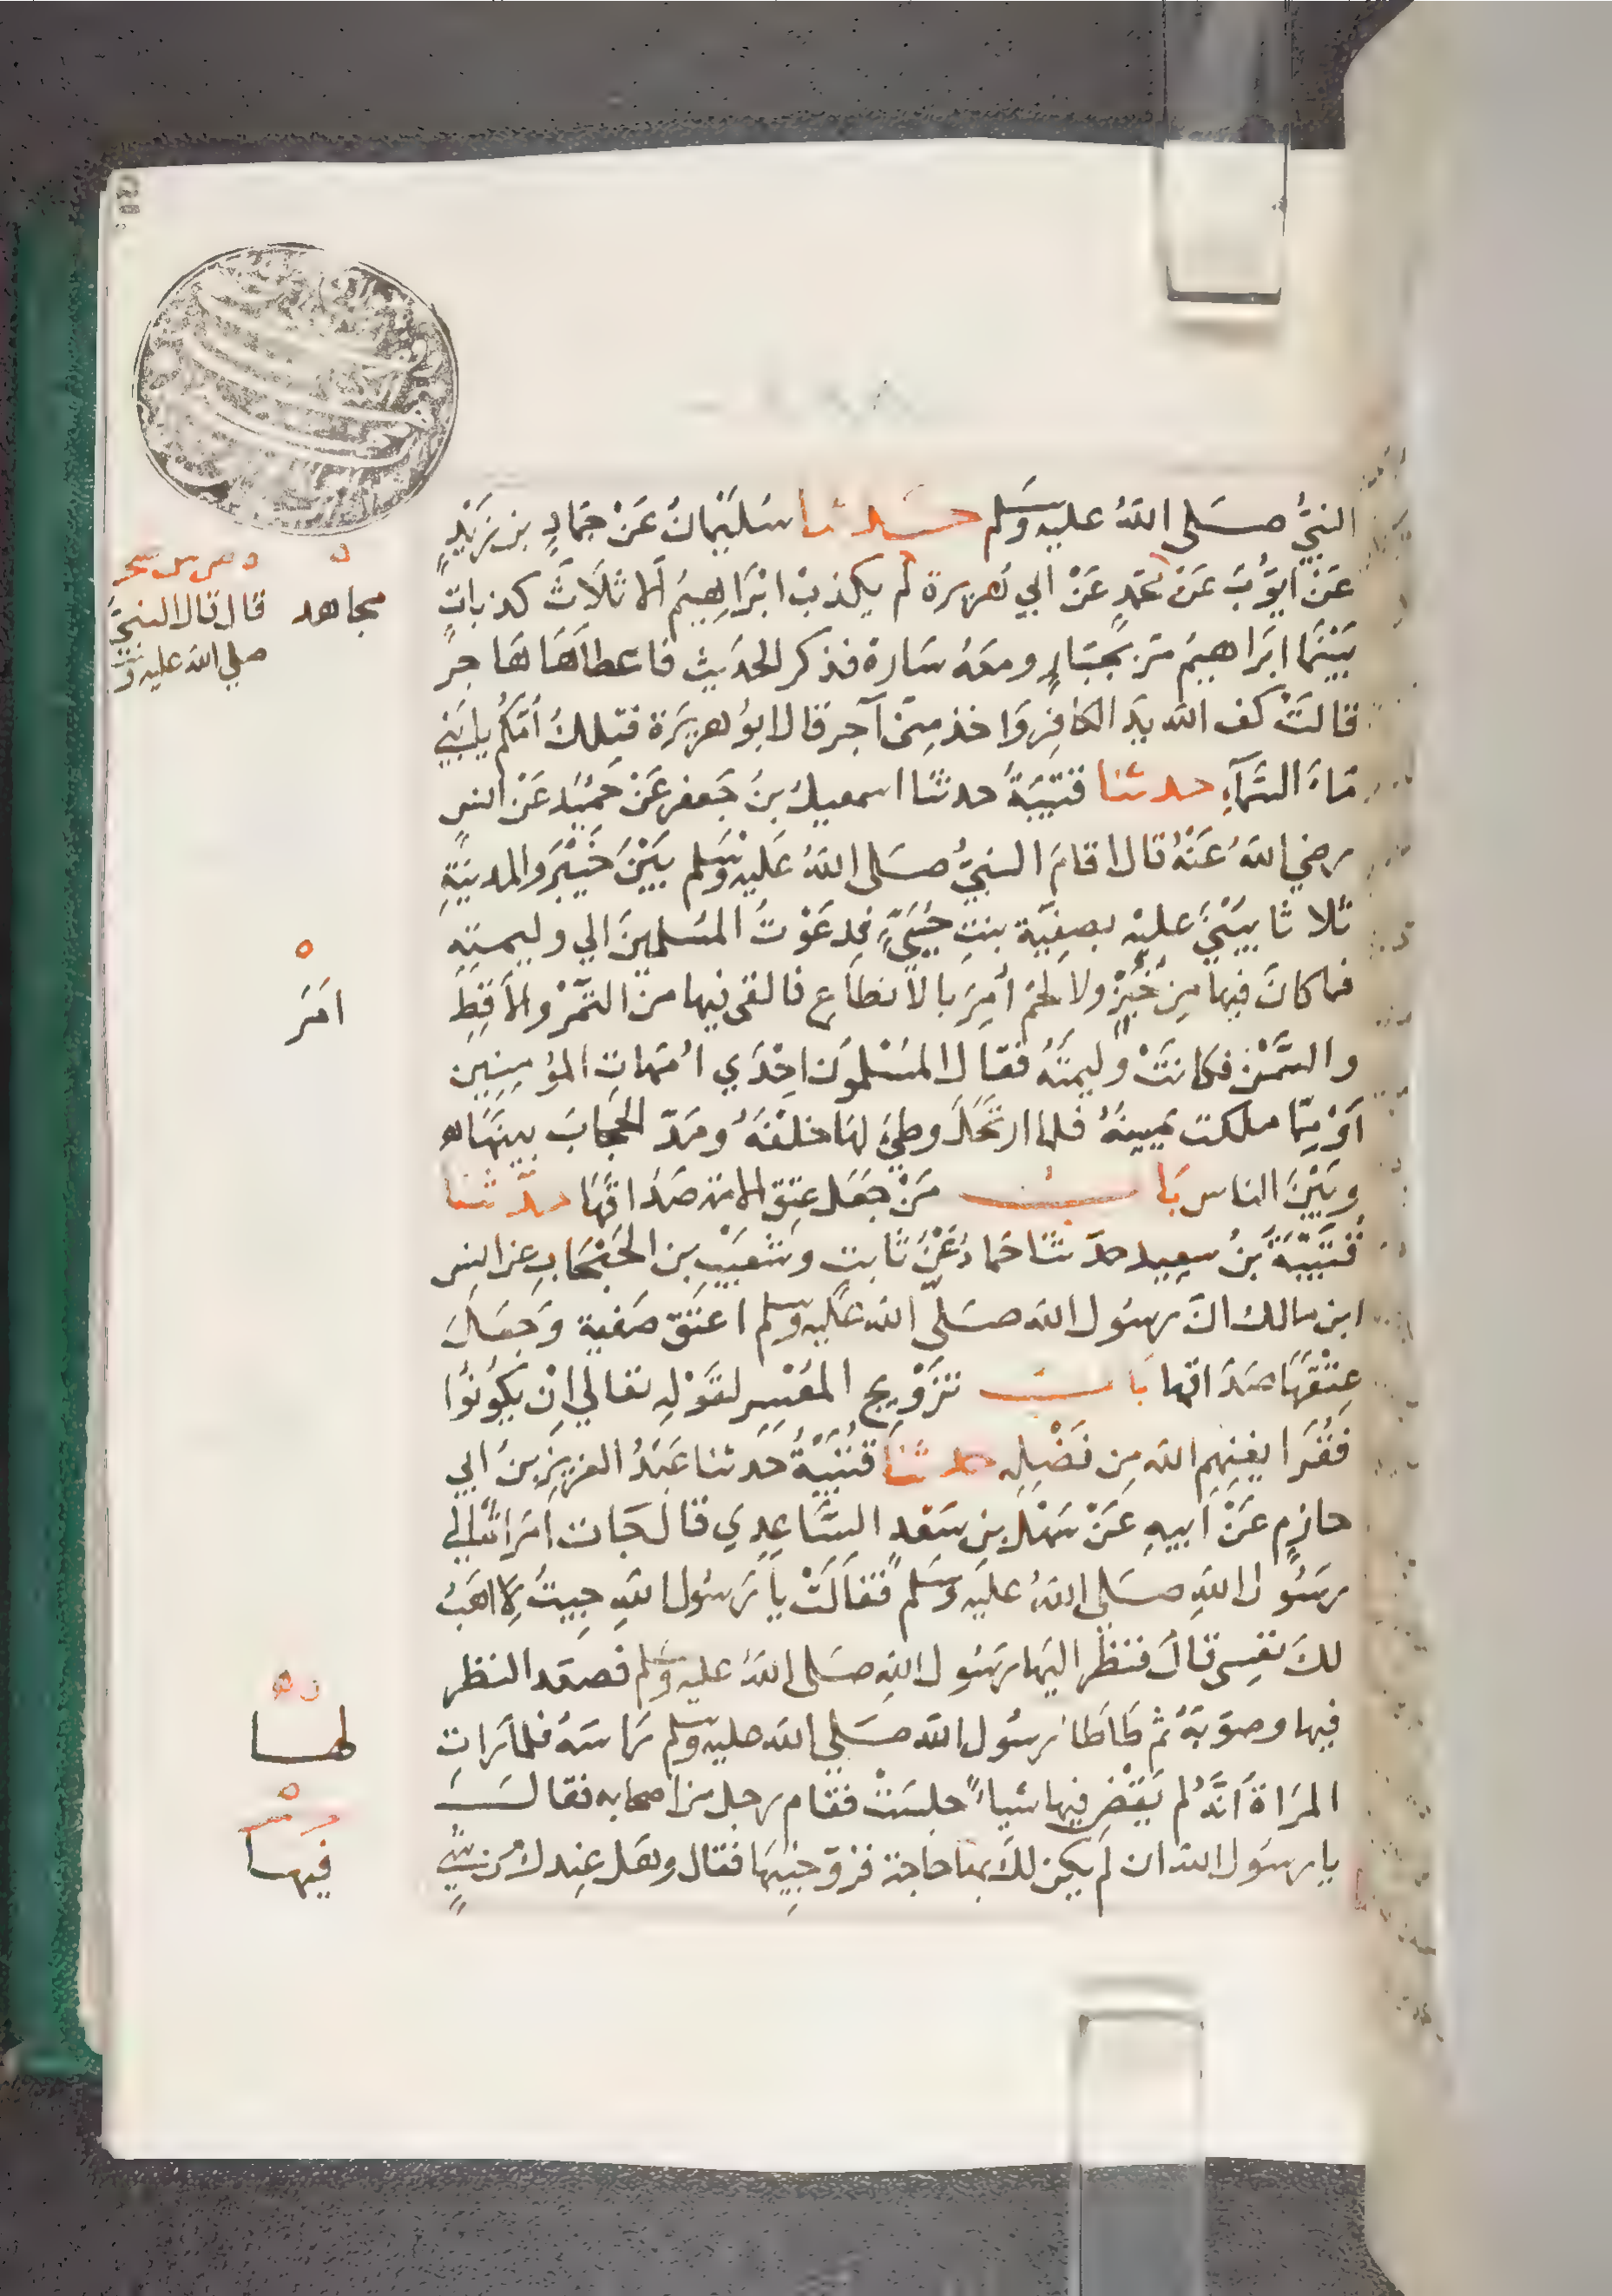 النبيُّ صَلى اللهُ عليه وسَلم حدثنا سُليْمانُ عَنْ حمادِ بن زيْدٍ
عَنْ ايّوُبَ عَن محمدٍ عَنْ ابي هُريرة لم يكذبْ ابْرَاهِيمُ الا ثلَاثَ كذباتٍ
بَيْنَما ابرَاهيمُ مَرّ بجَبّارٍ ومعَهُ سَارة فذكر الحدَيث فاعطاهَا هَاجرَ
قالتْ كف الله يدَ الكافِر وَاخذمِنى آجر قال ابوُ هريرَة فتلك اُمّكُم يا بَني
مَاءَ السّمآءِ حدثنا قتيْبَةُ حدثنا اسمعيلُ بنُ جَعفرعَنْ حميْد عَنْ انسٍ
رضي اللهُ عَنهُ قال اقامَ النبيُّ صَلى اللهُ عَليْه وسَلم بَيْنَ خيْبَرَ والمدينَةِ
ثلاثا يبنىَ عليْه بصفِيّة بنتِ حُيَيّ فدعَوْتُ المسْلمينَ الي وليمتِهِ
فما كانَ فيها مِن خُبزٌ ولا لحمٌ أُمِرَ بالانطاعِ فالقى فيها من التّمْر والاقِطِ
والسّمْن فكانتْ وليمتَهُ فقال المسْلموُن اِحْدَي امّهاتِ المؤمِنِين
اَوْ مِمّا ملكت يَمينهُ فلما ارتحَلَ وطيَ لهَا خلفهُ ومَدّ الحجابَ بينهَا
وبَيْنَ الناس بَاب مَنْ جَعَل عِتق الامَة صَدَاقَهَا حدّثنا
قُتَيْبَة بنُ سعِيد حدّثنَا حَمادُ عَنْ ثابت وشعَيْبِ بن الحَبْحَابِ عن انس
ابن مالك انّ رسُول الله صَلىّ الله عَليه وسلم اعتَق صَفية وَجَعَلَ
عِتْقَهَا صَدَاقها بَاب تَزْوِيج المعْسِر لقوْلِهِ تعَالي اِنْ يَكُونُوا
فقُرَا يغنِهِم الله مِن فَضْلِهِ حدثنَا قتيْبَةُ حَدثنا عَبْدُ العَزيز بنُ ابي
حازم عَنْ اَبيهِ عَنْ سَهْل بن سَعْد السّاعِدِي قال جَات امرَاة الي
رسُول اللهِ صَلى اللهُ عليْه وسَلم فقالتْ يا رَسُول اللهِ جِيتُ لاِ اهَبُ
لكَ نفسِى قال فنظرَ اليهَا رسُول اللهِ صَلى اللهُ عليه وسَلم فصعّد النظر
فيها وصوّبَهُ ثم طاطا رسُول الله صَلي الله عليه وسلم رَاسَهُ فلما رَاتِ
المرْاة اَنّهُ لم يَقْضِ فيها شيا جلسَتْ فقام رجل من اصحابه فقال
يا رسُول الله ان لم يكن لكَ بها حاجة فزوّجْنيهَا فقال وهَل عِندك من شيٍ
مجاهد
قال قال النبيُّ
صلي الله عليه وسَلم
اَمَرَ
لهَا
فيهَا